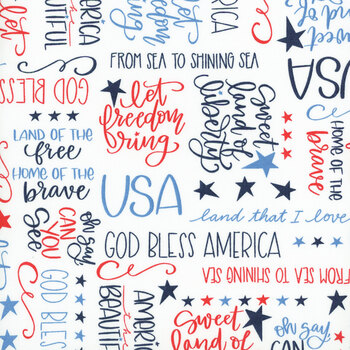 AMERICA
the
BEAUTIFUL
let
freedom
bring
land of
liberty
GOD BLESS
FROM SEA TO SHINING SEA
let
freedom
bring
Sweet
land of
liberty
LAND OF THE
free
HOME OF THE
brave
HOME OF THE
brave
USA
land that I love
oh say
CAN
YOU
See
GOD BLESS AMERICA
GOD BLESS
FROM SEA TO SHINING SEA
AMERICA
the
BEAUTIFUL
Sweet
land of
oh say
CAN